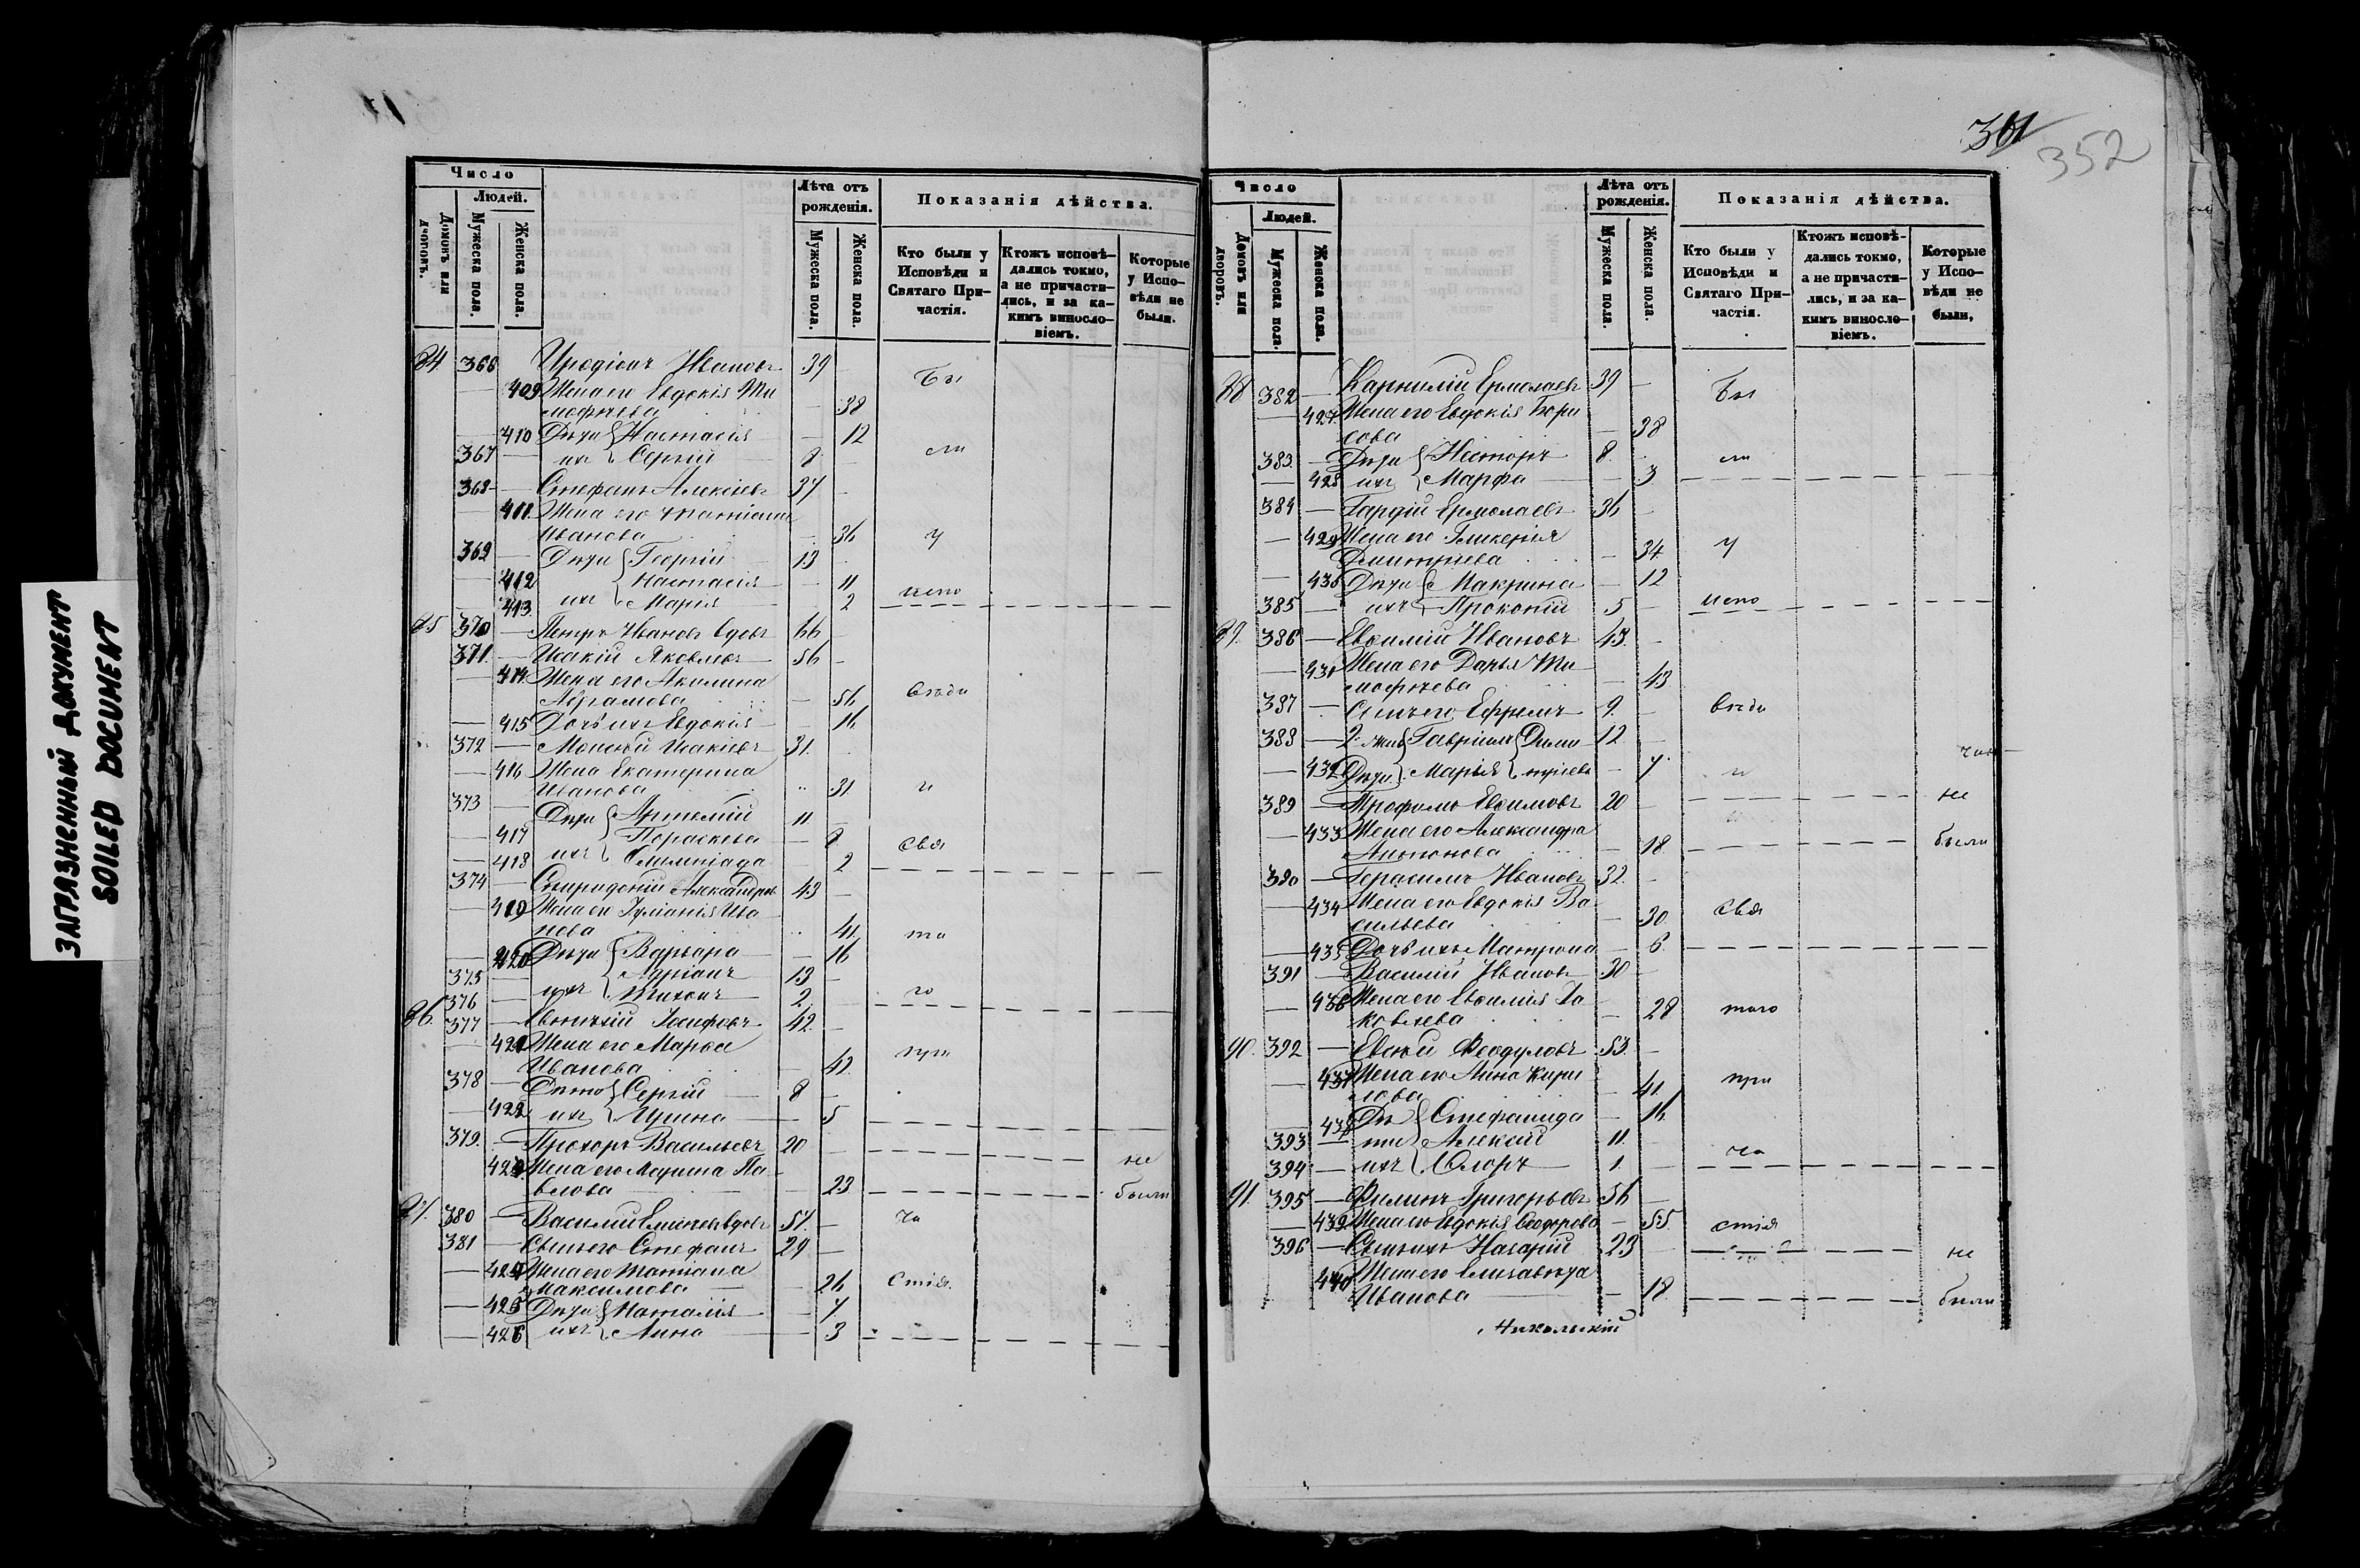 ЗАГРАЗНЕННЫЙ ДОКУМЕНТ
SOILED DOCUMENT
Число
Людей.
Домовъ или дворовъ.
Мужеска пола.
Женска пола.
Лѣта отъ рожденія.
Мужеска пола.
Женска пола.
Показанія дѣйства.
Кто были у Исповѣди и Святаго Причастія.
Ктожъ исповѣдались токмо, а не причастились, и за какимъ винословіемъ.
Которые у Исповѣди не были.
84 368 Иродіонъ Ивановъ 39 Бы
409 Жена его Евдокія Ти
мофѣева 38
410 Дѣти Настасія 12
367 ихъ Сергій 8 ли
368 Стефанъ Алексѣевъ 37
411 Жена его Татіана
Иванова 36 у
369 Дѣти Георгій 13
412 Настасія 11
413 ихъ Марія 2 испо
85 370 Петръ Ивановъ вдовъ 66
371 Исакій Яковлевъ 56
414 Жена его Акилина
Абрамова 56 вѣди
415 Дочь ихъ Евдокія 16
372 Моисей Исакіевъ 31
416 Жена Екатерина
Иванова 31 и
373 Дѣти Артемій 11
417 Параскева 8
418 ихъ Олимпіада 2 свя
374 Спиридоній Александровъ 43
419 Жена его Іуліанія Ива
нова 41 та
420 Дѣти Варвара 16
375 Адріанъ 13
376 ихъ Тихонъ 2 го
86 377 Евтихій Іосифовъ 42
421 Жена его Марья
Иванова 42 при
378 Дѣти Сергій 8
422 ихъ Ирина 5
379 Прохоръ Васильевъ 20 не
423 Жена его Марина Па
влова 23 были
87 380 Василій вдовъ 51 ча
381 Сынъ его Стефанъ 29
424 Жена его Татіана
Максимова 26 стія
425 Дѣти Наталія 7
426 ихъ Анна 3
361
352
Число
Людей.
Домовъ или дворовъ.
Мужеска пола.
Женска пола.
Лѣта отъ рожденія.
Мужеска пола.
Женска пола.
Показанія дѣйства.
Кто были у Исповѣди и Святаго Причастія.
Ктожъ исповѣдались токмо, а не причастились, и за какимъ винословіемъ.
Которые у Исповѣди не были,
88 382 Карнилій Ермолаевъ 39 Бы
427 Жена его Евдокія Бори
сова 38
383 Дѣти Несторъ 8 ли
428 ихъ Марфа 3
384 Ермолаевъ 36
429 Жена его Гликерія
Дмитріева 34 у
430 Дѣти Макрина 12
385 ихъ Прокопій 5 испо
89 386 Евѳимій Ивановъ 43
431 Жена его Дарья Ти
мофѣева 43
387 Сынъ его Ефремъ 9 вѣди
388 2 жены Гавріилъ Дими 12
432 Дѣти Марья тріевы 7 и
389 Трофимъ Евѳимовъ 20 не
433 Жена его Александра
18 были
390 Герасимъ Ивановъ 32
434 Жена его Евдокія Ва
сильева 30 свя
435 Дочь ихъ Матрона 6
391 Василій Ивановъ 30
436 Жена его Евѳимія Яа
ковлева 28 таго
90 392 Евсѣй Феодуловъ 53
437 Жена его Анна Кири
лова 41 при
438 Дѣ Стефанида 16
393 ти Алексій 11
394 ихъ Флоръ 1 ча
91 395 Филипъ Григорьевъ 56
439 Жена его Евдокія Ѳеодорова 55 стія
396 Сынъ ихъ Назарій 23 не
440 Жена его Елисавета
Иванова 18 были
Никольскій